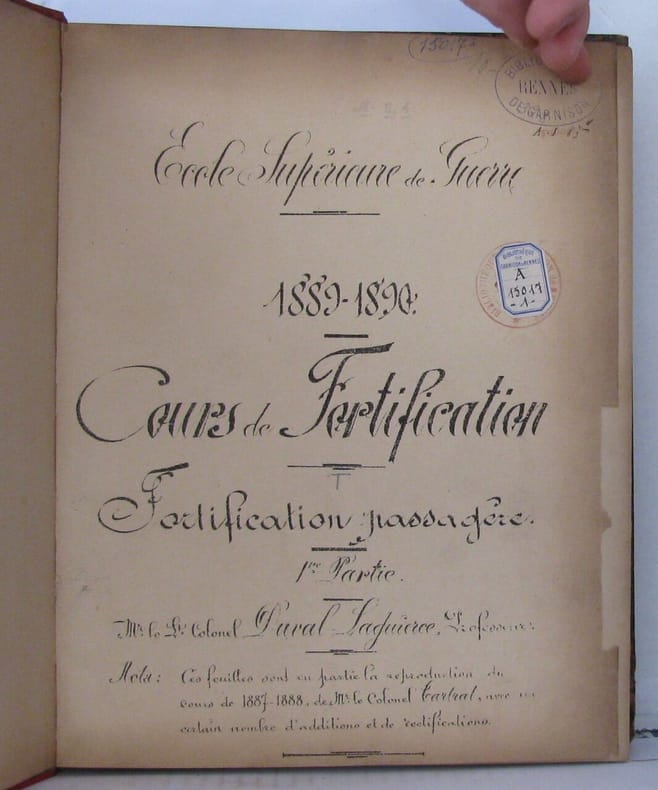 15017
BIBLIOTHÈQUE
RENNES
DE GARNISON
Ecole Supérieure de Guerre
BIBLIOTHÈQUE
DE
GARNISON DE RENNES
A
15017
-1-
1889-1890.
Cours de Fortification
T
Fortification passagère.
1re Partie.
Mr. le Lt. Colonel Duval Laguierce, Professeur.
Nota: Ces feuilles sont en partie la reproduction du
cours de 1887-1888, de Mr. le Colonel Cartrat, avec un
certain nombre d'additions et de rectifications.